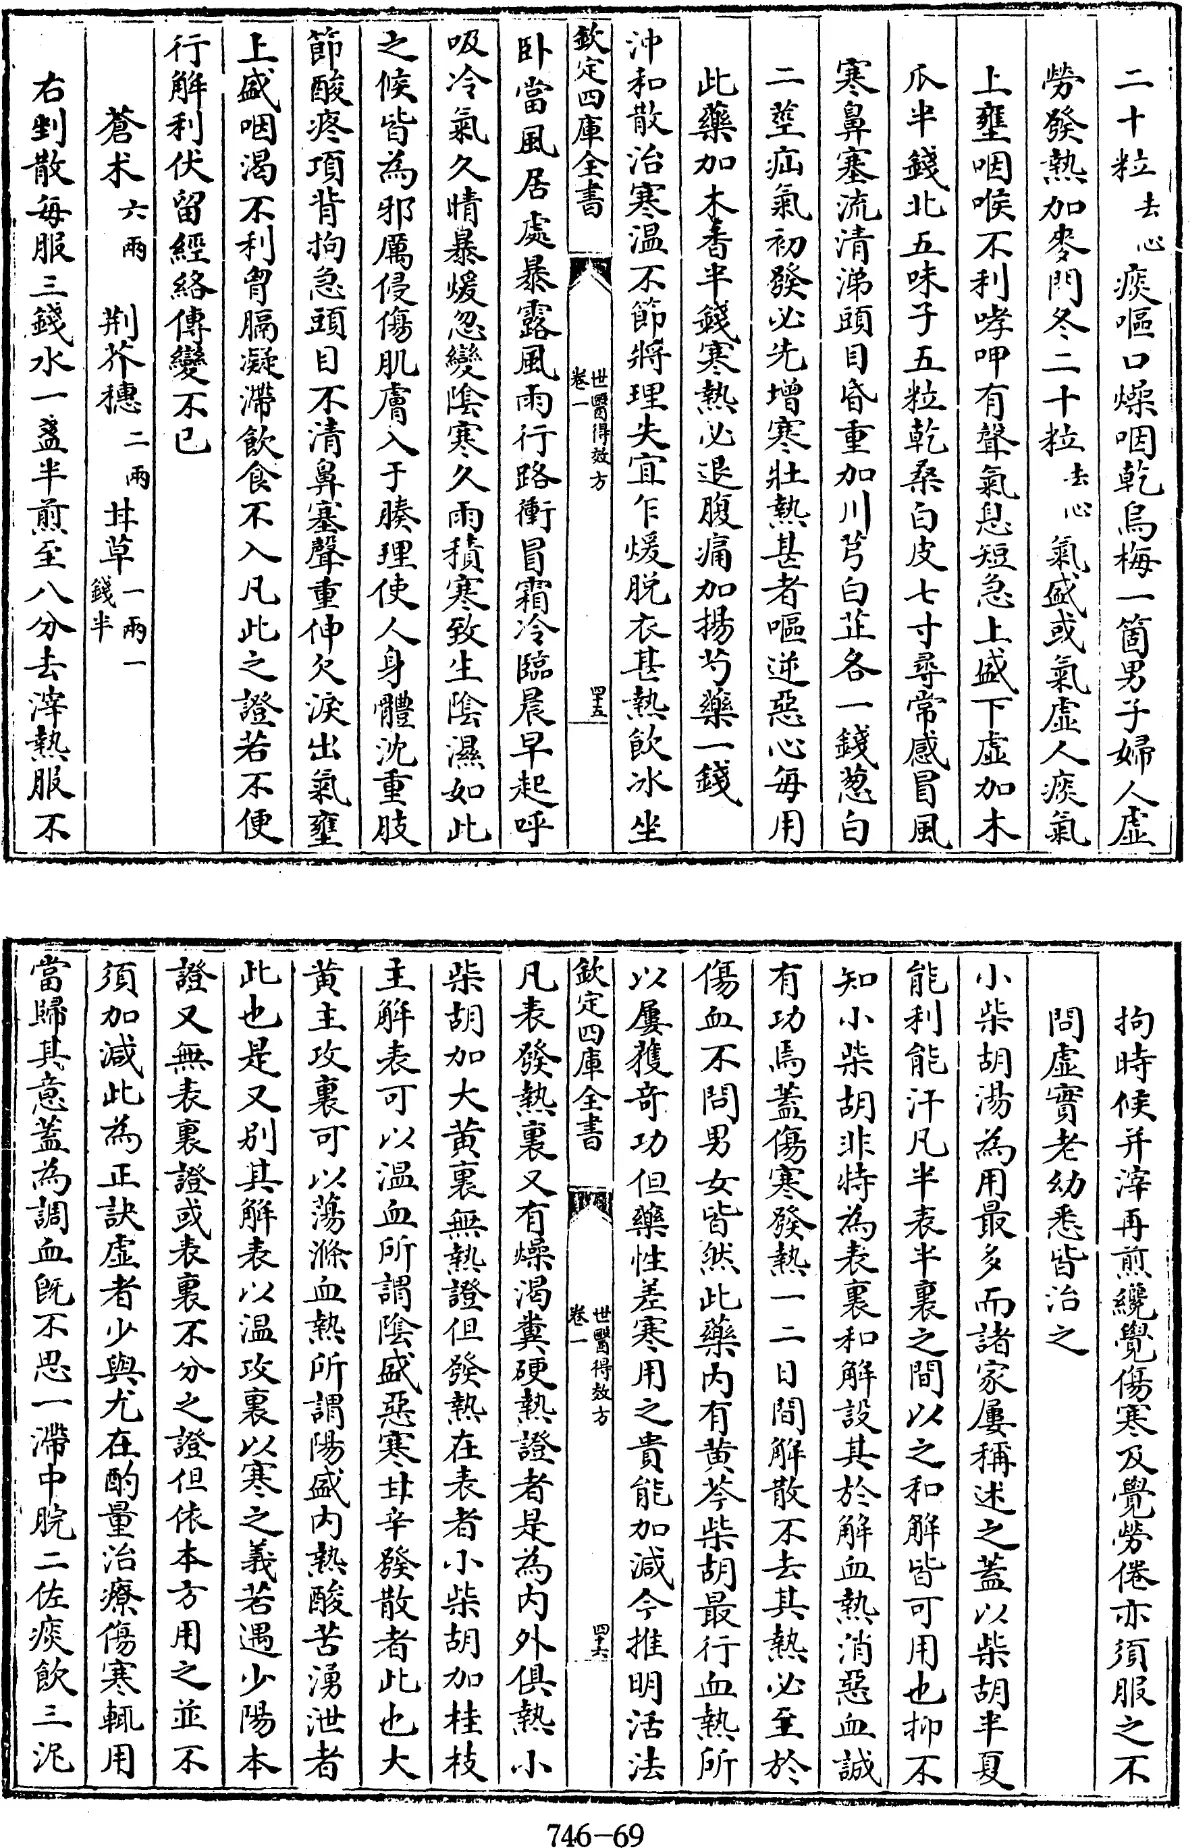 二十粒去心痰嘔口燥咽乾烏梅一箇男子婦人虛
勞發熱加麥門冬二十粒去心氣盛或氣虛人痰氣
上壅咽喉不利哮呷有聲氣息短急上盛下虛加木
瓜半錢北五味子五粒乾桑白皮七寸尋常感冒風
寒鼻塞流清涕頭目昏重加川芎白芷各一錢葱白
二莖疝氣初發必先增寒壯熱甚者嘔逆惡心每用
此藥加木香半錢寒熱必退腹痛加揚芍藥一錢
沖和散治寒温不節將理失宜乍煖脱衣甚熱飲冰坐
欽定四庫全書
世醫得效方
卷一
四十五
卧當風居處暴露風雨行路衝冒霜冷臨晨早起呼
吸冷氣久晴暴煖忽變陰寒久雨積寒致生陰濕如此
之候皆為邪厲侵傷肌膚入于腠理使人身體沈重肢
節酸疼項背拘急頭目不清鼻塞聲重伸欠淚出氣壅
上盛咽渴不利胷膈凝滯飲食不入凡此之證若不便
行解利伏留經絡傳變不已
蒼术六兩 荆芥穗二兩 甘草一兩一錢半
右剉散每服三錢水一盞半煎至八分去滓熱服不
拘時候并滓再煎纔覺傷寒及覺勞倦亦須服之不
問虛實老幼悉皆治之
小柴胡湯為用最多而諸家屢稱述之蓋以柴胡半夏
能利能汗凡半表半裏之間以之和解皆可用也抑不
知小柴胡非特為表裏和解設其於解血熱消惡血誠
有功焉蓋傷寒發熱一二日間解散不去其熱必至於
傷血不問男女皆然此藥内有黄芩柴胡最行血熱所
以屢獲奇功但藥性差寒用之貴能加減今推明活法
欽定四庫全書
世醫得效方
卷一
四十六
凡表發熱裏又有燥渴糞硬熱證者是為内外俱熱小
柴胡加大黄裏無熱證但發熱在表者小柴胡加桂枝
主解表可以温血所謂陰盛惡寒甘辛發散者此也大
黄主攻裏可以蕩滌血熱所謂陽盛内熱酸苦湧泄者
此也是又别其解表以温攻裏以寒之義若遇少陽本
證又無表裏證或表裏不分之證但依本方用之並不
須加減此為正訣虛者少與尤在酌量治療傷寒輒用
當歸其意蓋為調血旣不思一滯中脘二佐痰飲三泥
746-69